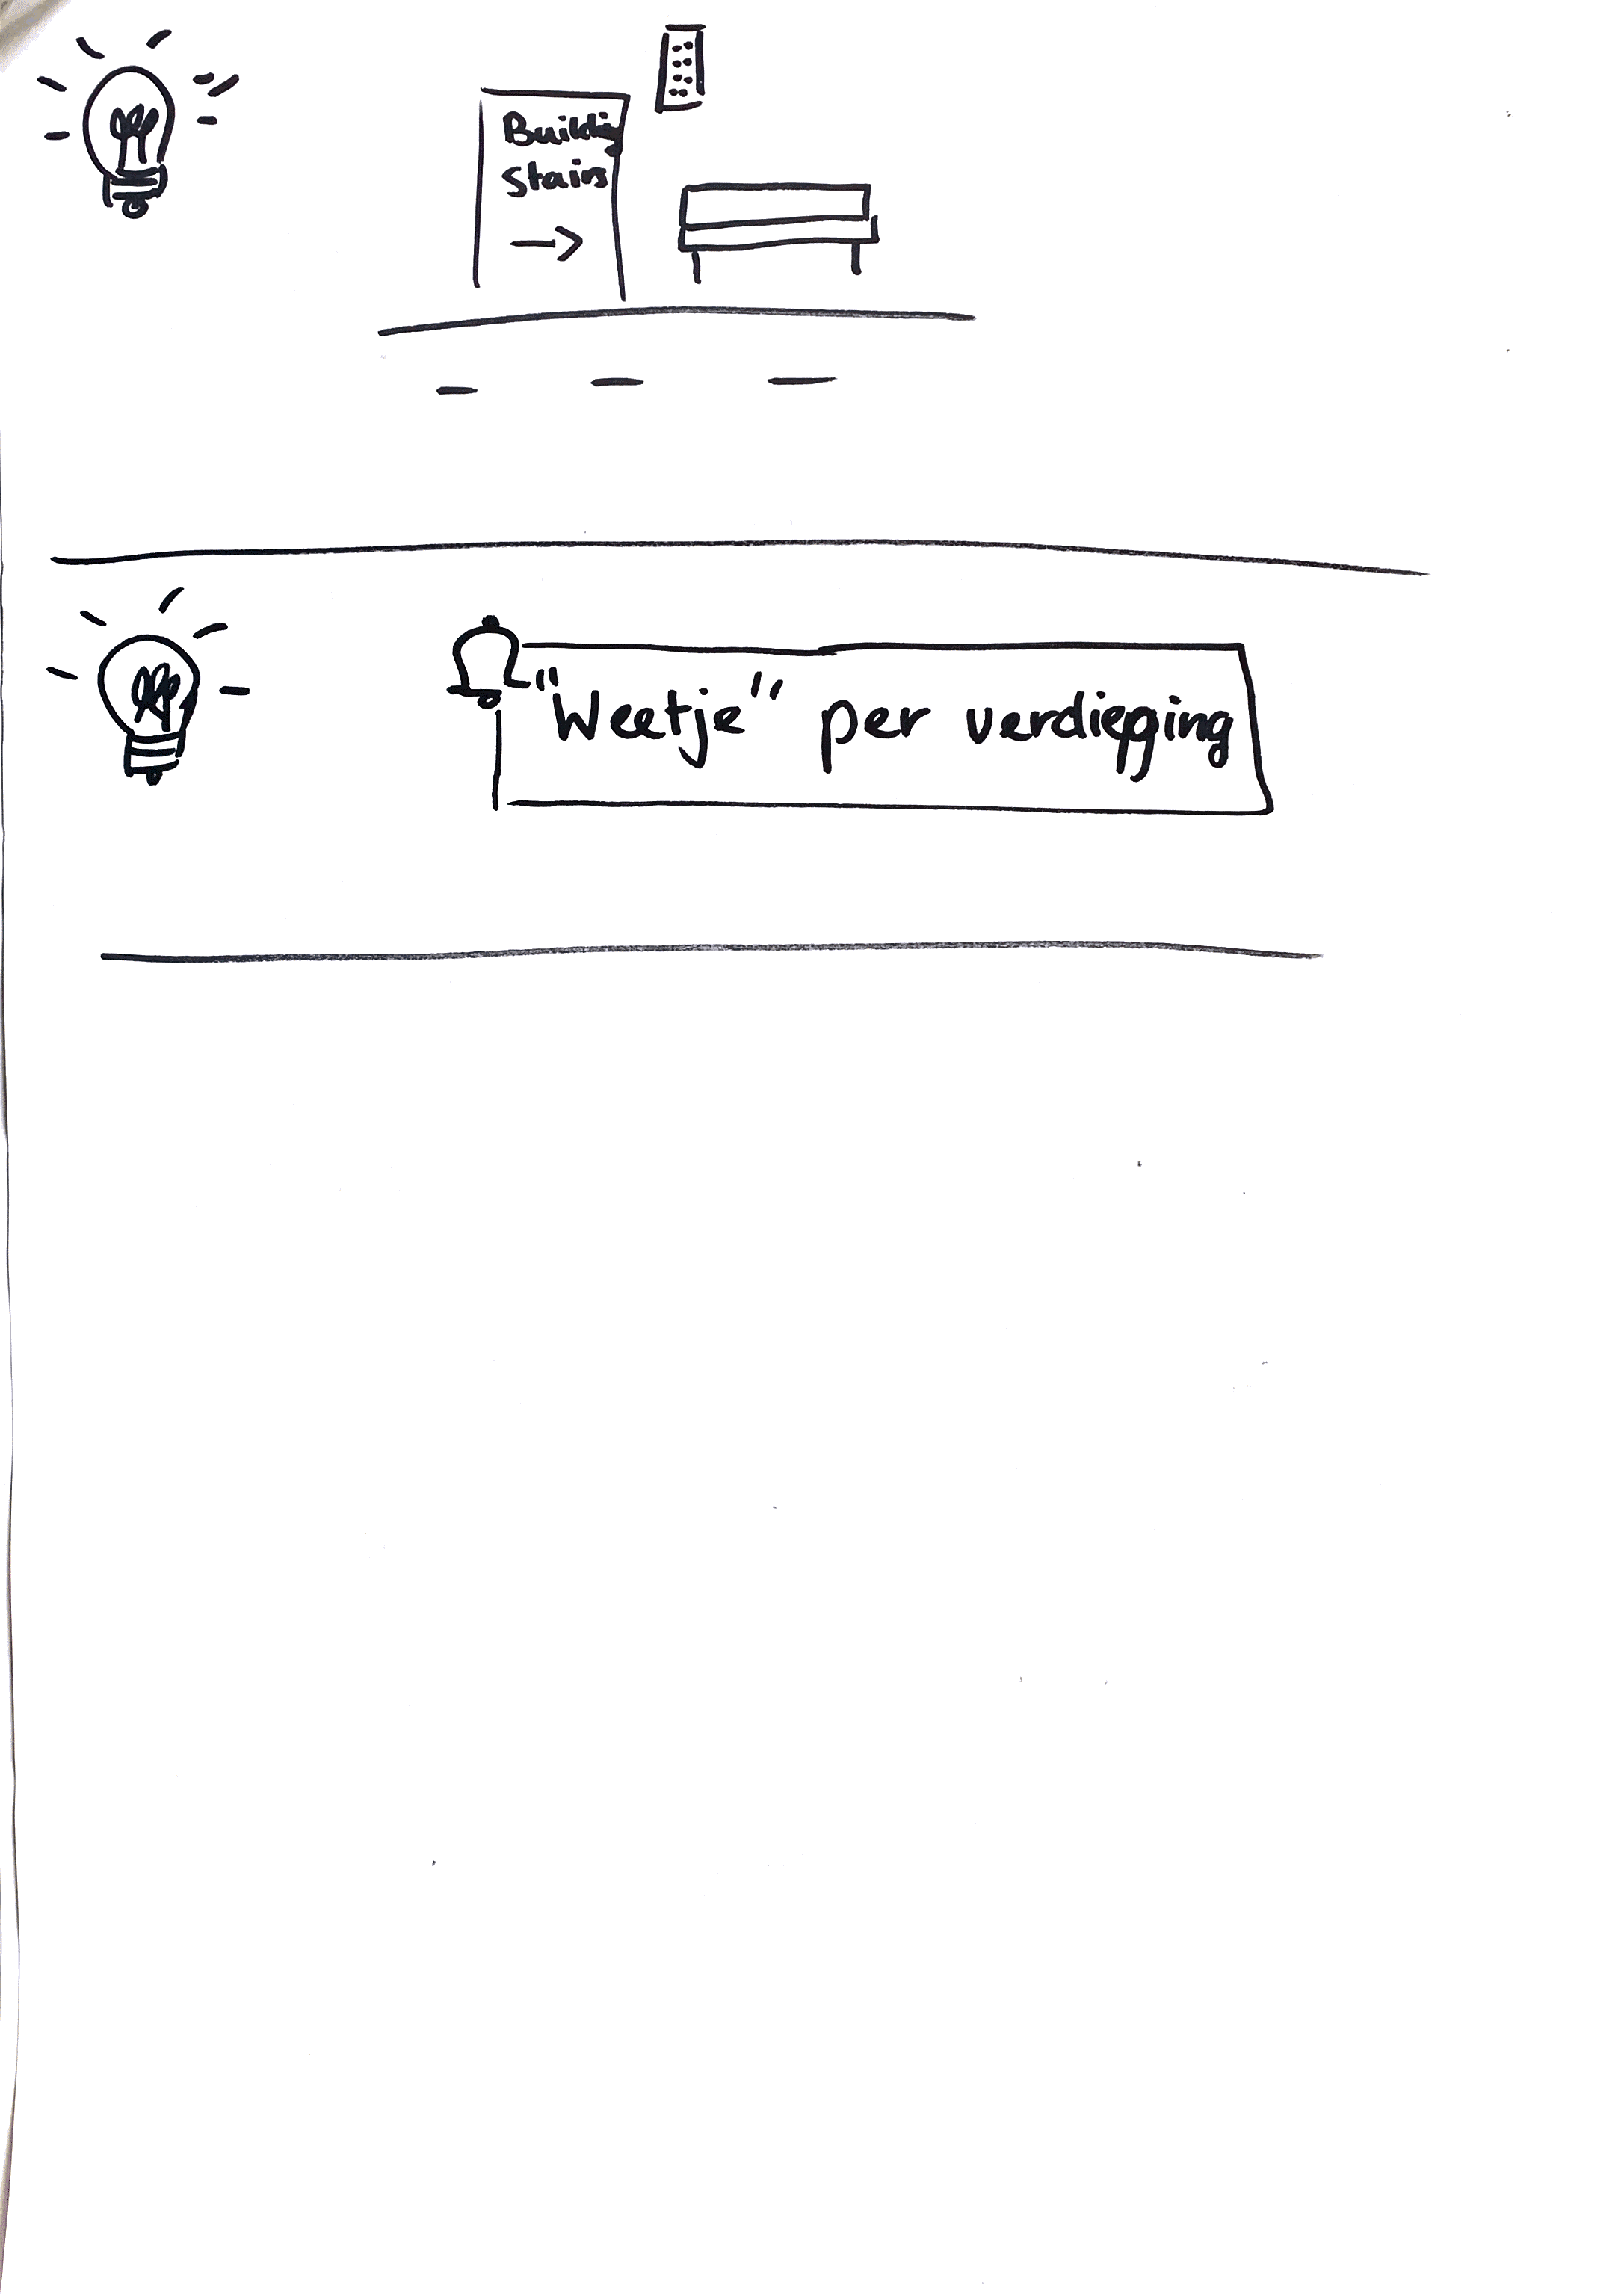 Building
Stairs
"Weetje" per verdieping